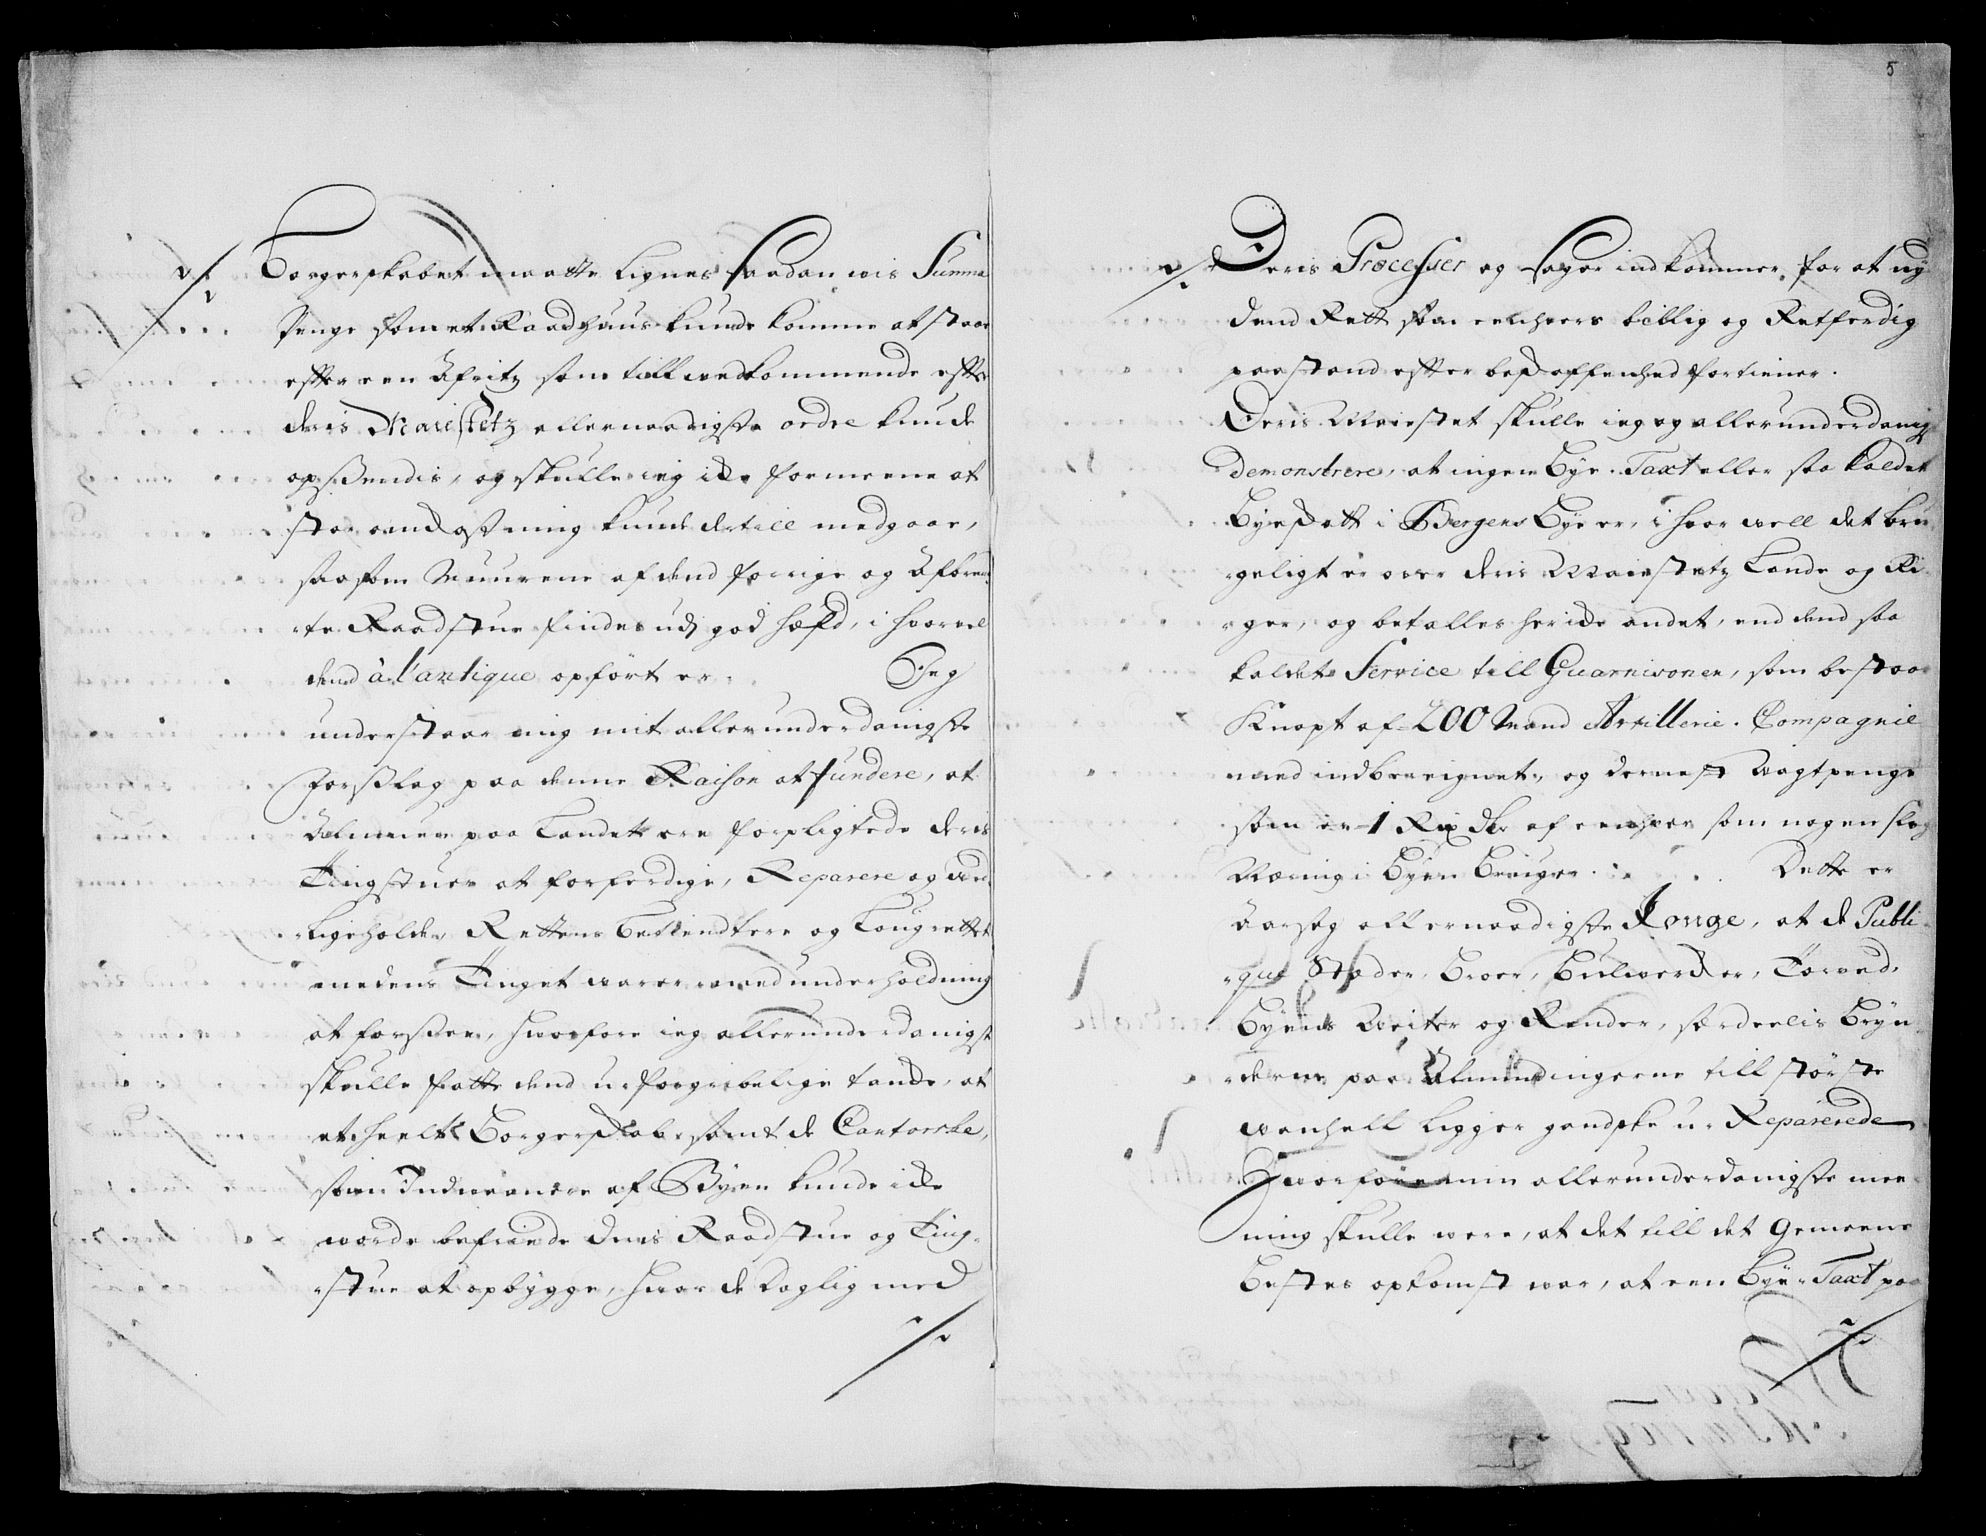 Borgerskabet maatte lignes saadan wis Summa
Penge som et Raadhuus kunde komme at staae
efter een Afritz som till wedkommende efter
deris Maiestetz allernaadigste ordre kunde
opsendis, og skulle ieg icke formeene at
stor omkostning kunde dertill medgaae,
saasom Muurene af dend forrige og Afbren-
te Raadstue findes udj god hæfd, i hvorvel
dend à l'antique opført er. Jeg
understaar mig mit allerunderdanigste
Forslag paa denne Raison at fundere, at
Almuen paa Landet ere forpligtede deris
Tingstuer at forferdige, Reparere og Wed-
ligeholde, Rettens betiendtere og Laugrettet
medens Tinget warer med underholdning
at forsee, hworfore ieg allerunderdanigst
skulle fatte dend u-forgribelige tancke, at
et heelt Borgerskab samt de Contorske,
som Indwaanere af Byen kunde icke
worde befriede deris Raadstue og Ting-
stue at opbygge, hwor de daglig med
5
Deris Processer og sager indkommer, for at ny-
de dend Rett som eenhvers billig og Retferdig
paastand efter beskaffenhed fortiener.
Deris Maiestet skulle ieg og allerunderdanigst
demonstrere, at ingen Bye-Taxt eller saa kaldet
Byeskatt i Bergens Bye er, i hvor well det bru-
geligt er over deris Maiestetz Lande og Ri-
ger, og betalles her icke andet, end dend saa
kaldet Service till Guarnisonen, som bestaar
Knapt af 200 Mand Artillerie-Compagnie
med indbereignet, og dernest Wagtpenge
som er 1 Rixdlr af eenhver som nogen slag
Næring i Byen bruger. Dette er
Aarsag allernaadigste Konge, at de Publi-
que Stæder, Broer, Bulwercker, Torved,
Byens Weiter og Render, særdeelis Brøn-
derne paa Almindingerne till største
wanheld ligger gandske u-Reparerede
Hworfore min allerunderdanigste mee-
ning skulle were, at det till det Gemeene
Bestes opkomst war, at een Bye-Taxt paa